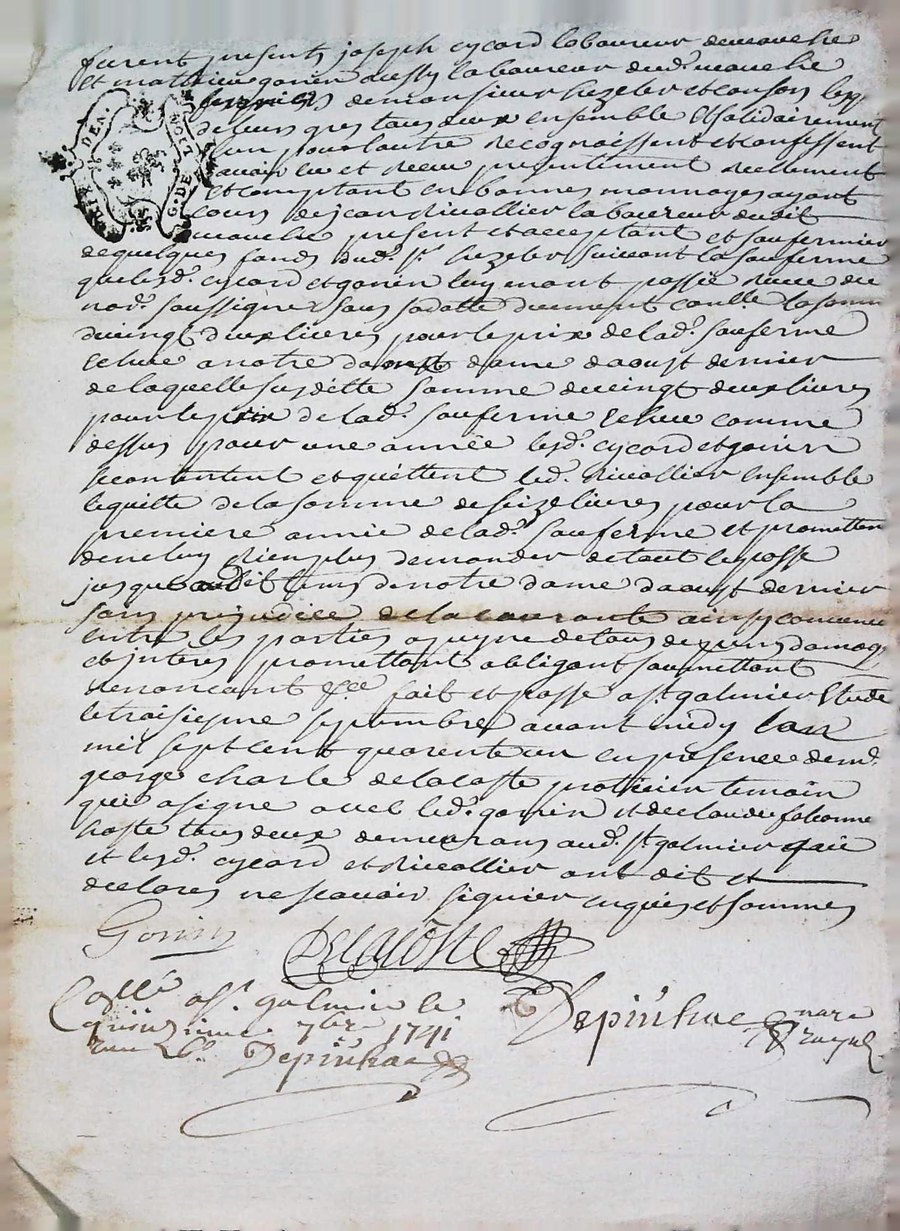 furent presents joseph cycard laboureur de maveche
et mathieu gonin aussy laboureur dud. maveche
fermiers de monsieur huzeler et
de leurs gres tous deux ensemble et solidairement
lun pour lautre recognoissent et confessent
avoir eu et receu presentement reellement
et comptant en bonnes monnoyes ayant
cours de jean Rivollier laboureur dudit
maveche present et acceptant et soufermier
de quelques fonds dud. sr. huzeler suivant la souferme
que lesd. cycard et gonin luy en ont passée receu du
nore. soussigné sous sa datte duement conllée la somme
de vingt deux livres pour le prix de lad. souferme
echue a notre dame daoust dernier
de laquelle susditte somme de vingt deux livres
pour le prix de lad. souferme echue comme
dessus pour une année lesd. cycard et gonin
se contentent et quittent led. Rivollier ensemble
le quitte de la somme de seize livres pour la
premiere année de lad. souferme et promettent
de ne luy rien plus demander de tout le passé
jusques audit jour de notre dame daoust dernier
sans prejudice de la courante ainsy convenu
entre les parties a peyne de tous despens damages
et interes promettant obligeant soumettant
renoncant &ce fait et passé a st. galmier étude
le troisieme septembre avant midy lan
mil sept cent quarente un en presence de mr.
george charle delacoste praticien temoin
qui a signé avec led. gonin et de claude fabonne
hoste tous deux demeurans aud. st. galmier
et lesd. cycard et Rivollier ont dit et
declarés ne scavoir signier enquis et sommés
Gonin
Delacoste
Depinhac nore royal
Conllé a st. galmier le
quinzieme 7bre 1741
Depinhac
G. DE LION